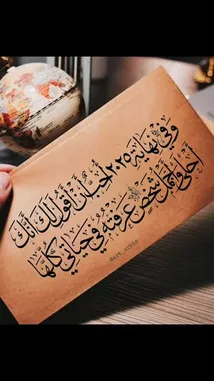 وفي نهاية ٢٠٢٥ أحب أن أقول لك أنك
أحلى وأجمل شخص عرفته في حياتي كلها